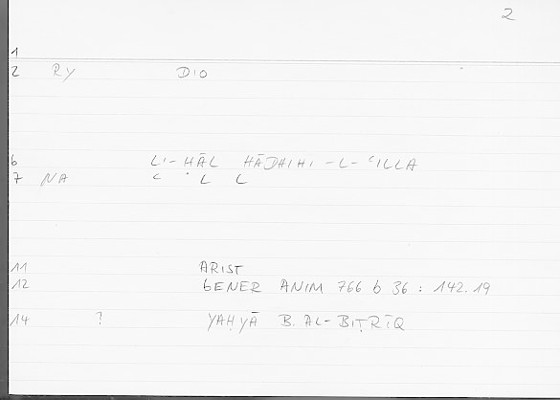 2
1
2 RY DIO
6 LI-ḤĀL HĀḎAIHI-L-ʿILLA
7 NA ʿ L L
11 ARIST
12 GENER ANIM 766 b 36 : 142.19
14 ? YAḤYĀ B. AL-BIṬRĪQ